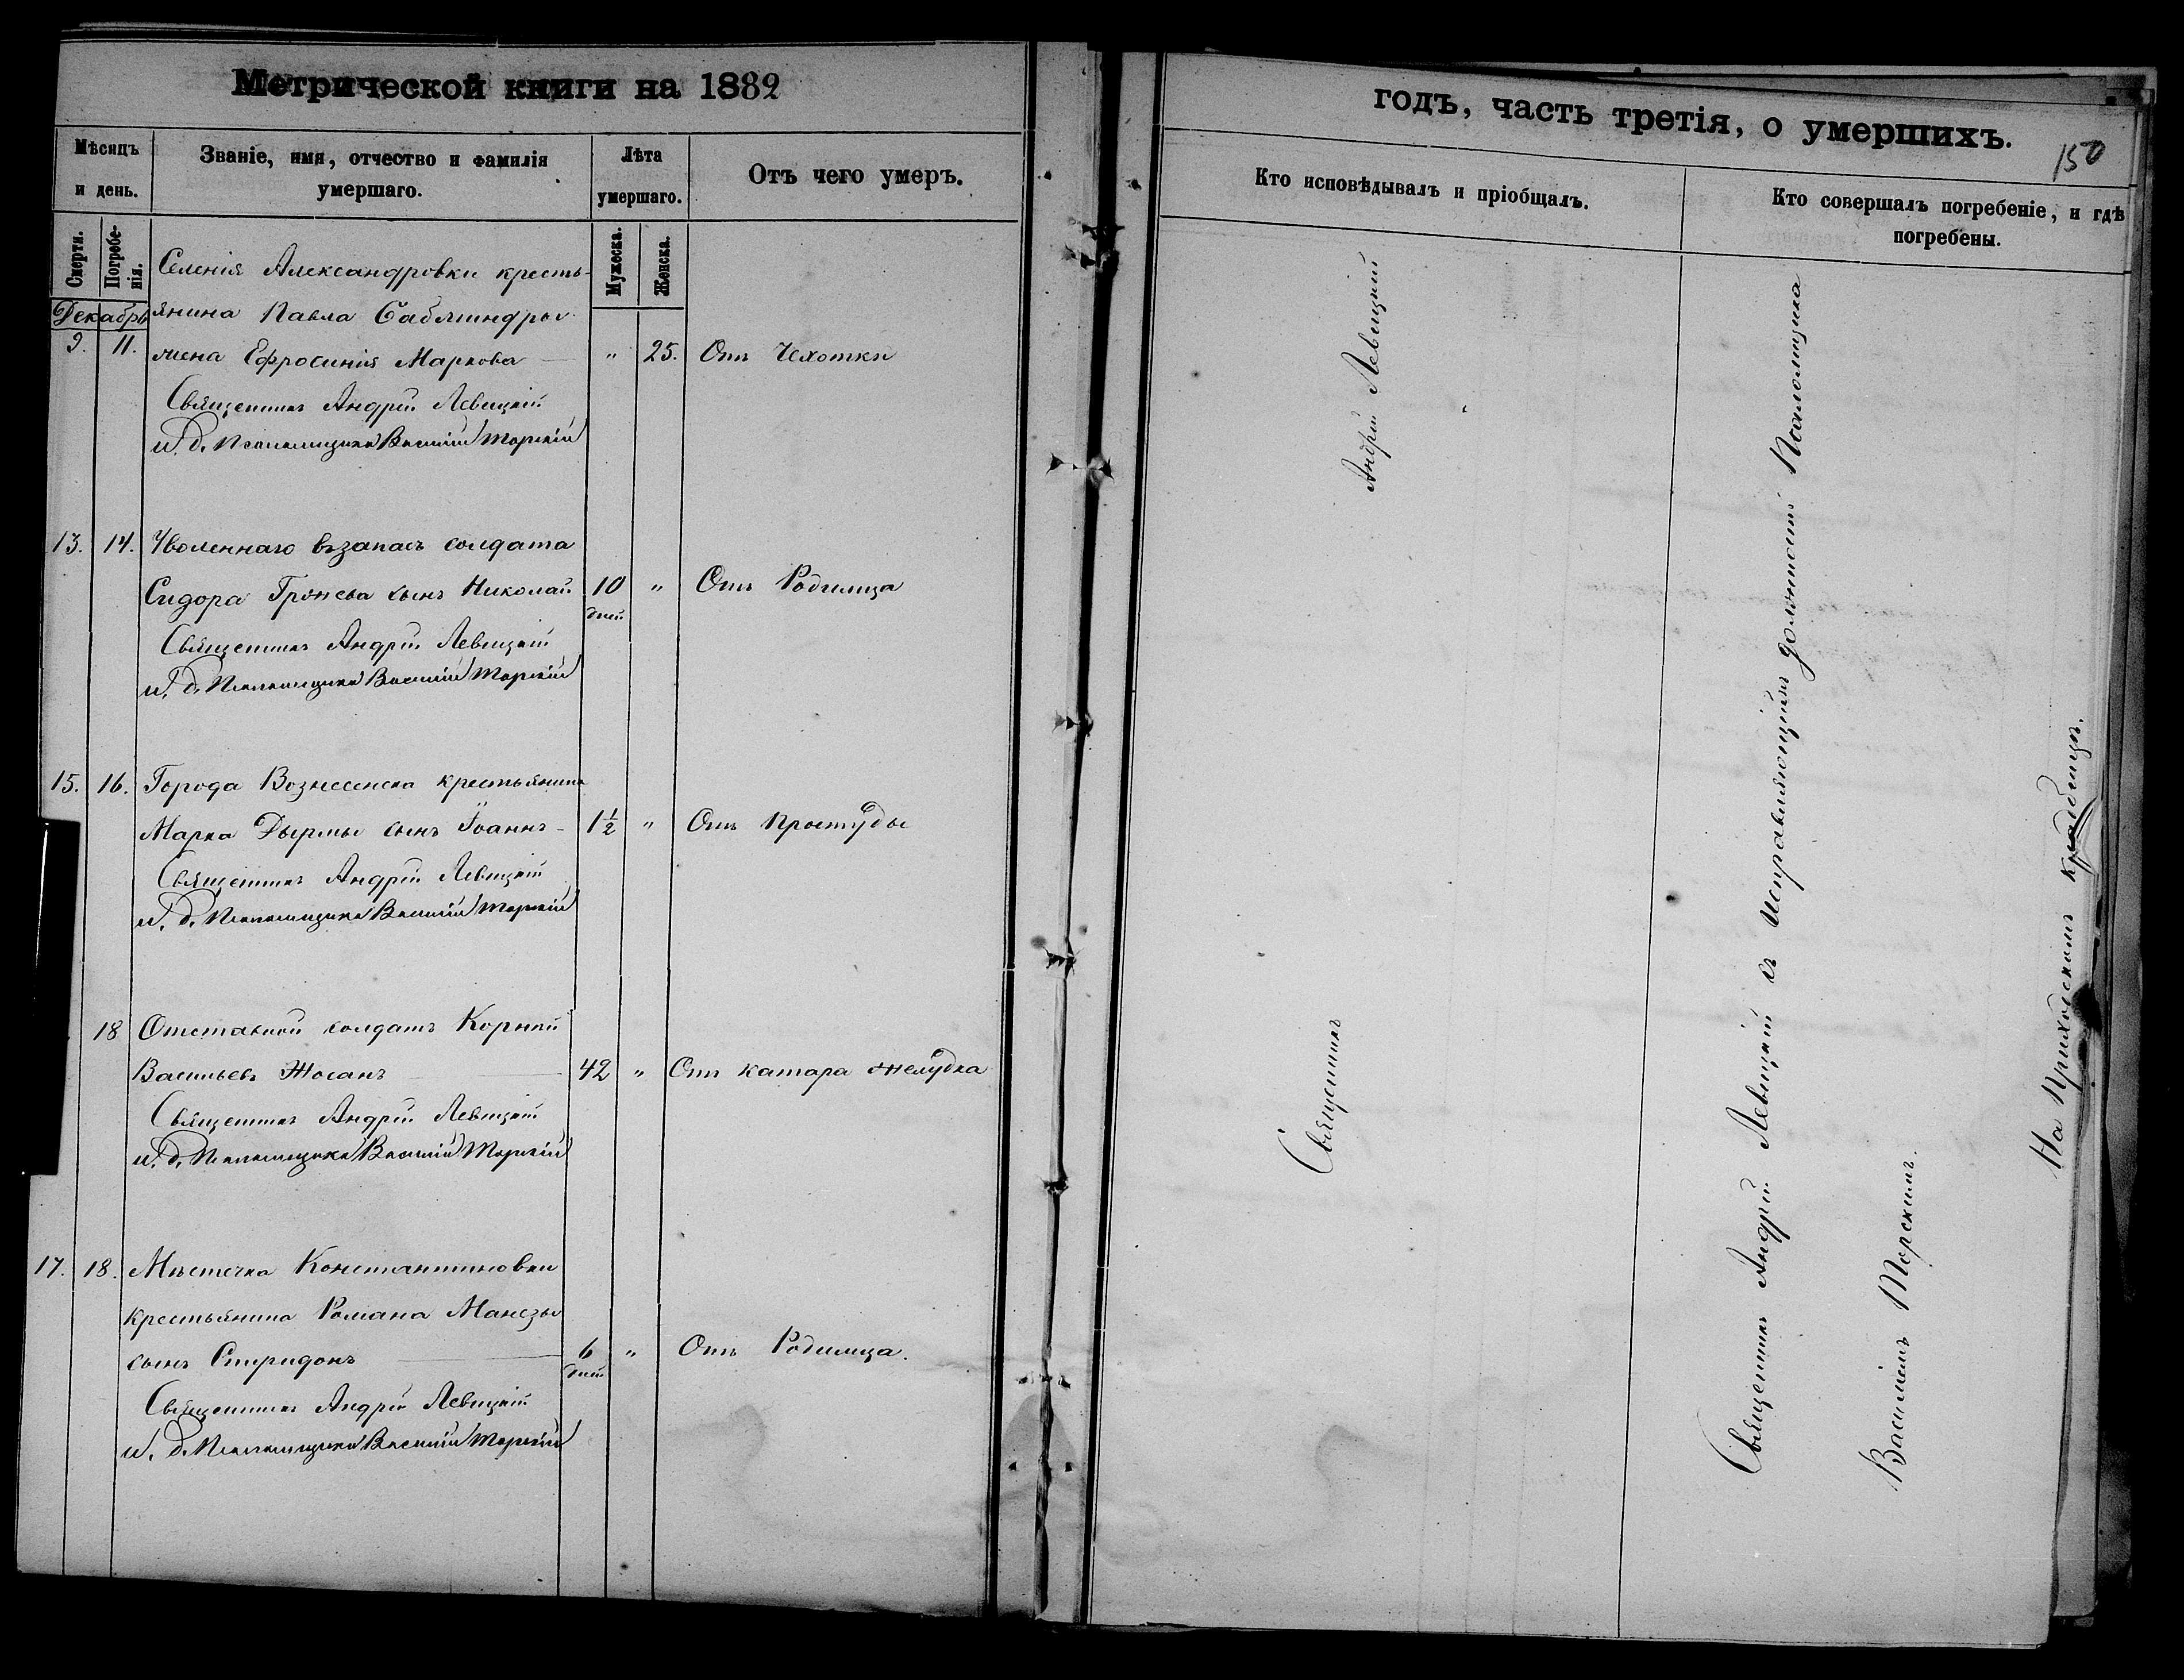 Метрической книги на 1882
Мѣсяцъ и день.
Званіе, имя, отчество и фамилія умершаго.
Лѣта умершаго.
Отъ чего умеръ.
Смерти.
Погребенія.
Мужеска.
Женска.
Декабрь
Селенія Александровки кресть-
янина Павла Саблиндры
9. 11. жена Ефросинія Маркова — " 25. Отъ Чехотки
Священникъ Андрей Левицкій
и. д. Псаломщика Василій Торскій
13. 14. Уволеннаго възапасъ солдата
Сидора сынъ Николай 10 дней " Отъ Родимца
Священникъ Андрей Левицкій
и. д. Псаломщика Василій Торскій
15. 16. Города Вознесенска крестьянина
Марка Дырмы сынъ Іоаннъ - 1½ " Отъ Простуды
Священникъ Андрей Левицкій
и. д. Псаломщика Василій Торскій
18 Отставной солдатъ Корней
Васильевъ Жосанъ — 42 " Отъ катара желудка
Священникъ Андрей Левицкій
и. д. Псаломщика Василій Торскій
17. 18. Мѣстечка Константиновки
крестьянина Романа Манезы
сынъ Спиридонъ — 6 дней " Отъ Родимца.
Священникъ Андрей Левицкій
и. д. Псаломщика Василій Торскій
годъ, часть третія, о умершихъ.
150
Кто исповѣдывалъ и пріобщалъ.
Кто совершалъ погребеніе, и гдѣ
погребены.
Священникъ Андрей Левицкій
Священникъ Андрей Левицкій съ исправляющимъ должность Псаломщика
Василіемъ Торскимъ.
На Приходскомъ кладбищѣ.